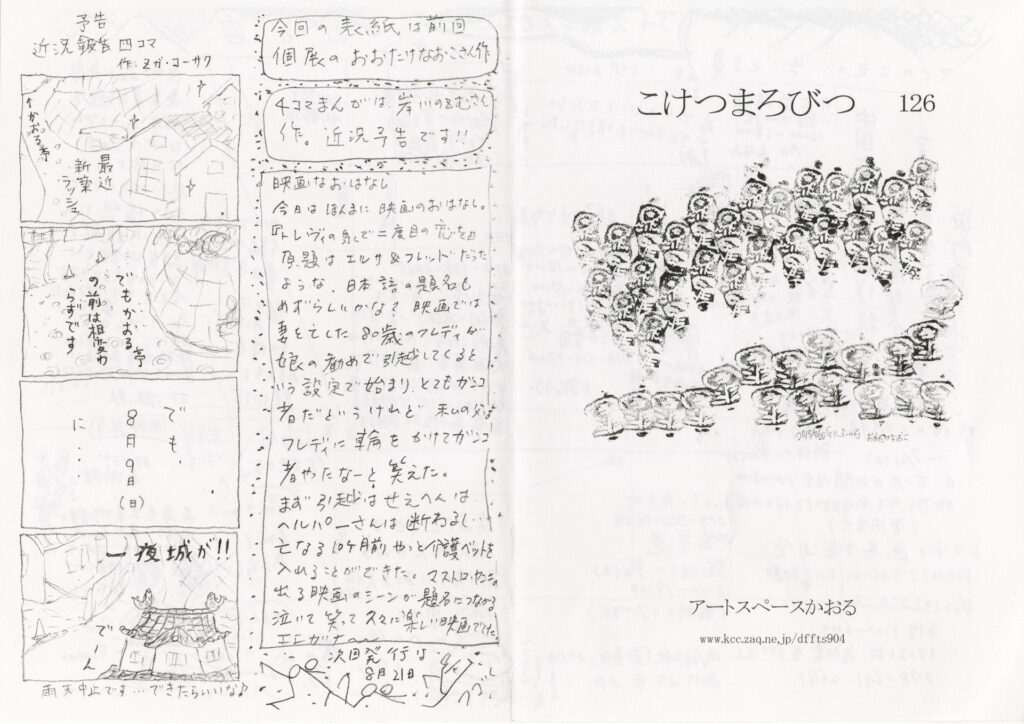 こけつまろびつ 126
アートスペースかおる
www.kcc.zaq.ne.jp/dffts904
今回の表紙は前回
個展のおおたけなおこさん作
4コマまんがは、岩川のぞむさん
作。近況予告です!!
映画なおはなし
今日はほんまに映画のおはなし。
『トレヴィの泉で二度目の恋を』
原題はエルサ&フレッドだった
ような、日本語の題名も
めずらしいかな? 映画では
妻を亡した80歳のフレディが
娘の勧めで引越してくると
いう設定で始まり、とてもガンコ
者だというけれど 私の父は
フレディに輪をかけてガンコ
者やったなーと笑えた。
まず引越はせえへんは、
ヘルパーさんは断わるし…
亡なる10ヶ月前やっと介護ベットを
入れることができた。マストロヤンニの
出る映画のシーンが題名につながる
泣いて笑って久々に楽しい映画でした
次回発行は
8月21日
予告
近況報告四コマ
作:ヌガ・コーサク
↑かおる亭
最近
新築
ラッシュ
でもかおる亭
の前は相変わ
らずです
でも、
8月9日(日)
に…
一夜城が!!
でーん
雨天中止です…できたらいいな♪